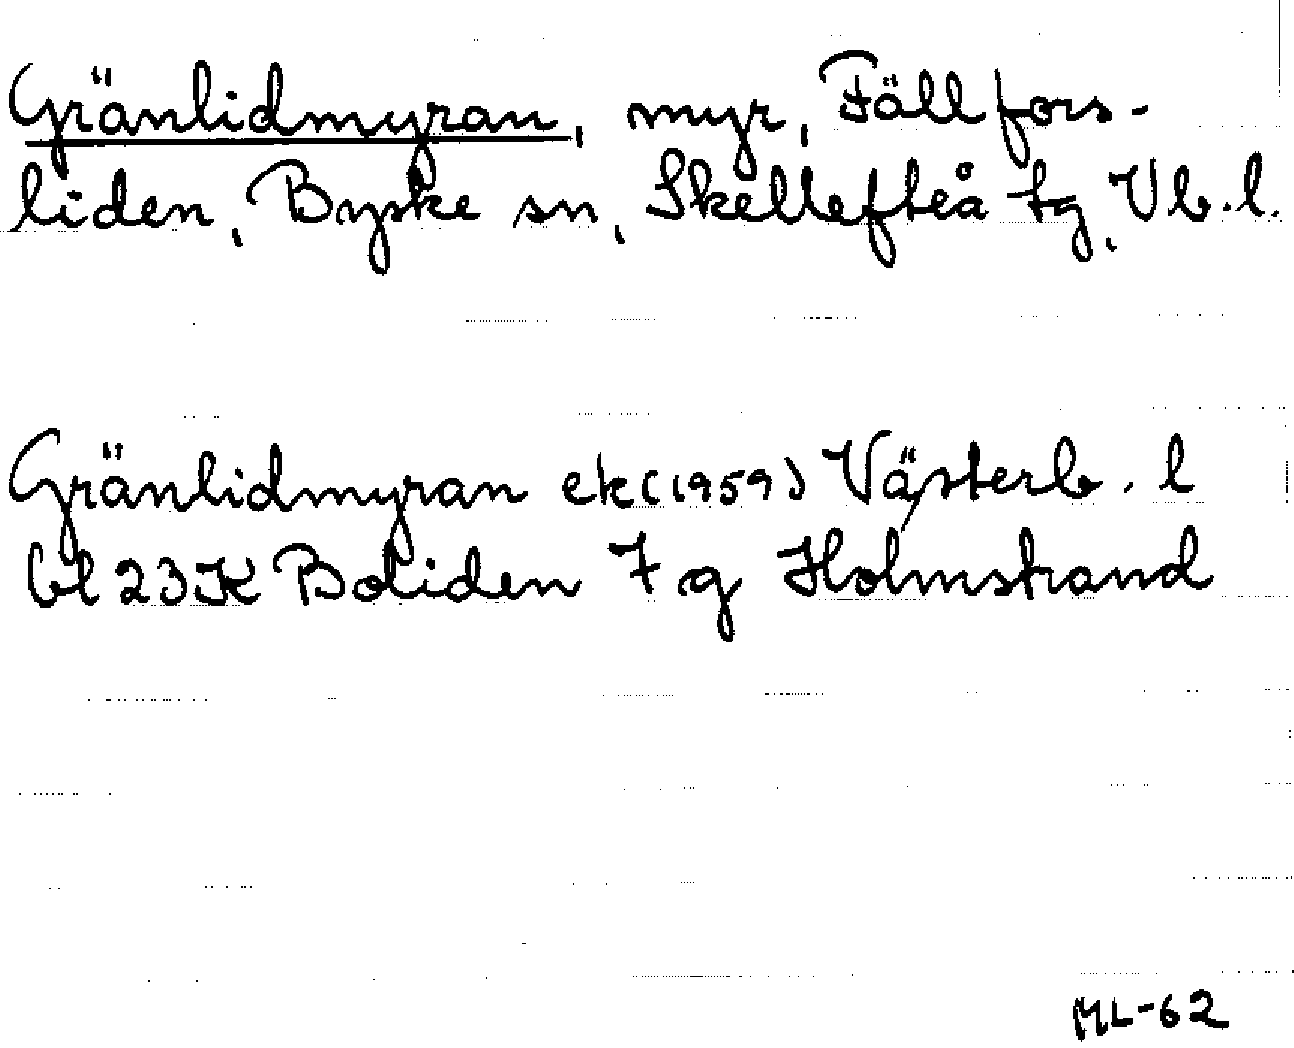 Gränlidmyran, myr, Fällfors-
liden, Byske sn, Skellefteå tg, Vb.l.
Gränlidmyran ek (1959) Västerb. l
bl 23K Boliden 7 g Holmstrand
ML-62